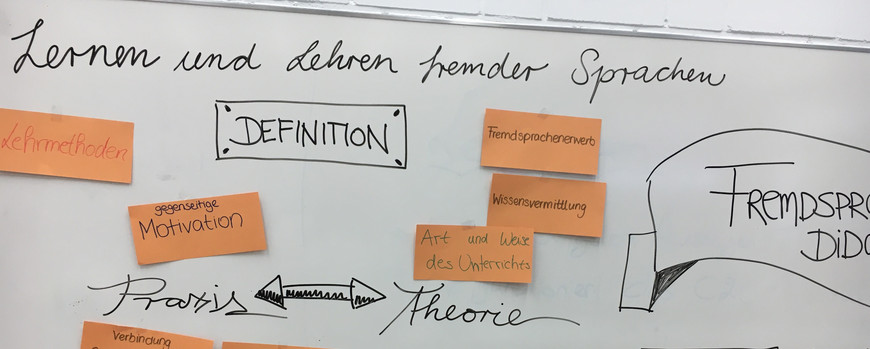 Lernen und Lehren fremder Sprachen
Lehrmethoden
DEFINITION
Fremdsprachenerwerb
Wissensvermittlung
gegenseitige
Motivation
Art und Weise
des Unterrichts
FREMDSPRA
DIDA
Praxis
Theorie
Verbindung